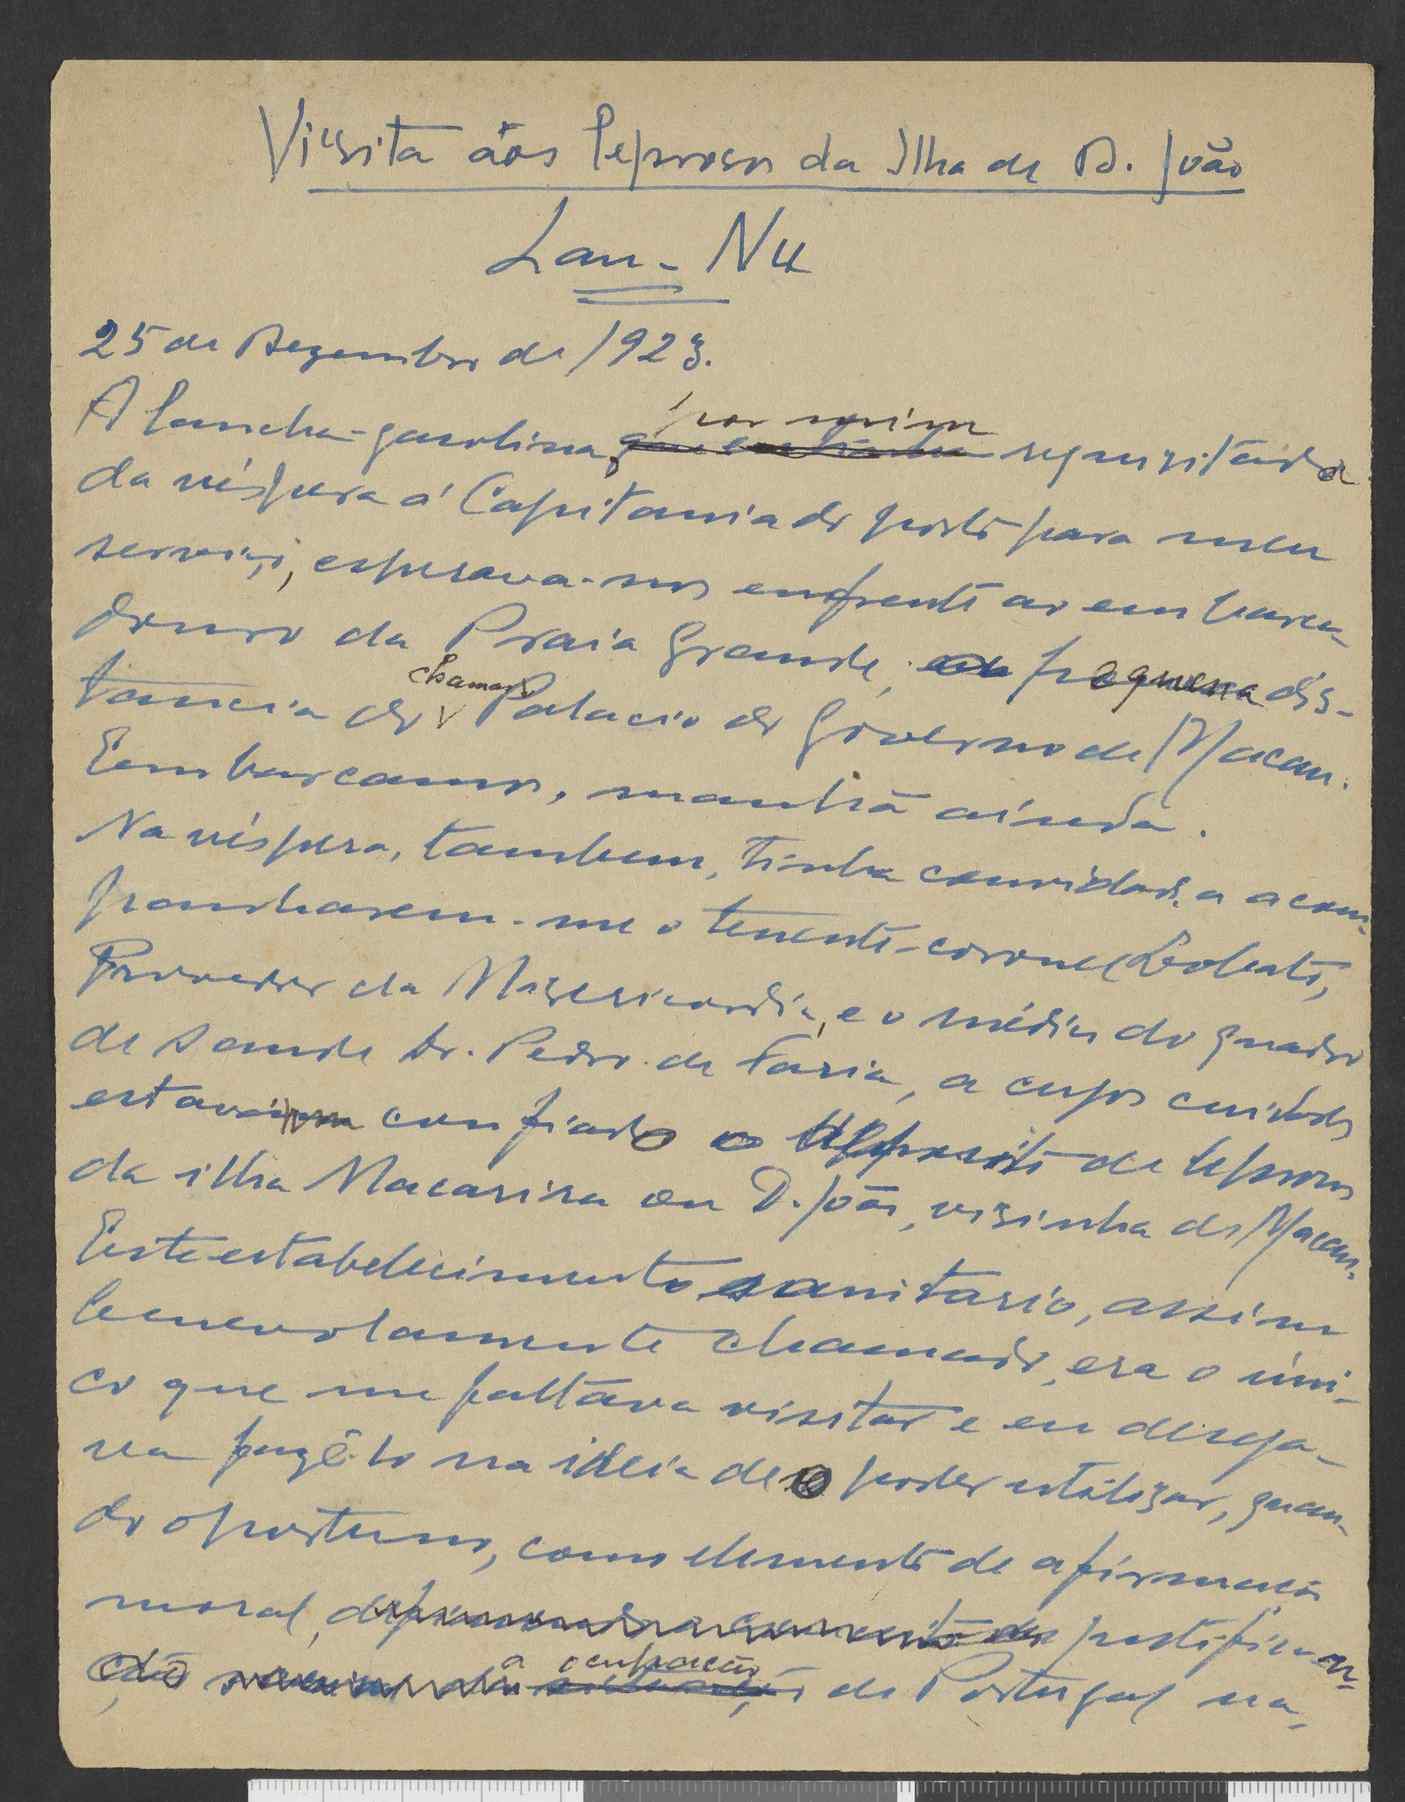 Visita aos leprosos da Ilha de D. João
Lan-Nu
25 de Dezembro de 1923.
A lancha-gasolina, por mim requizitada
da véspera á Capitania do porto para meu
serviço, esperava-nos enfrente ao embarca-
douro da Praia Grande, a pequena dis-
tancia do chamado Palacio do Governo de Macau.
Embarcamos, manhã ainda.
Na véspera, tambem, tinha convidado a acom-
panharem-me o tenente-coronel Lobato,
Provedor da Misericordia, e o médico do quadro
de saude Dr. Pedro de Faria, a cujos cuidados
estava confiado o deposito de leprosos
da ilha Macarira ou D. João, vizinha de Macau.
Este estabelecimento sanitario, assim
benevolamente chamado, era o úni-
co que me faltava visitar e eu deseja-
va fazê-lo na ideia de o poder utilizar, quan-
do oportuno, como elemento de afirmação
moral, justifican-
do a ocupação de Portugal na-